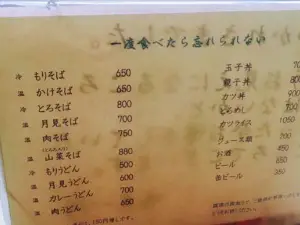 一度食べたら忘れられない
冷 もりそば 650
温 かけそば 650
冷 とろそば 800
温 月見そば 700
温 肉そば 750
温 山菜そば 880
冷 もりうどん 500
温 月見うどん 600
温 カレーうどん 700
温 肉うどん 650
玉子丼 70
親子丼 800
カツ丼 900
とろめし 700
カツライス 1050
ジュース類 200
お酒 450
ビール 650
缶ビール 350